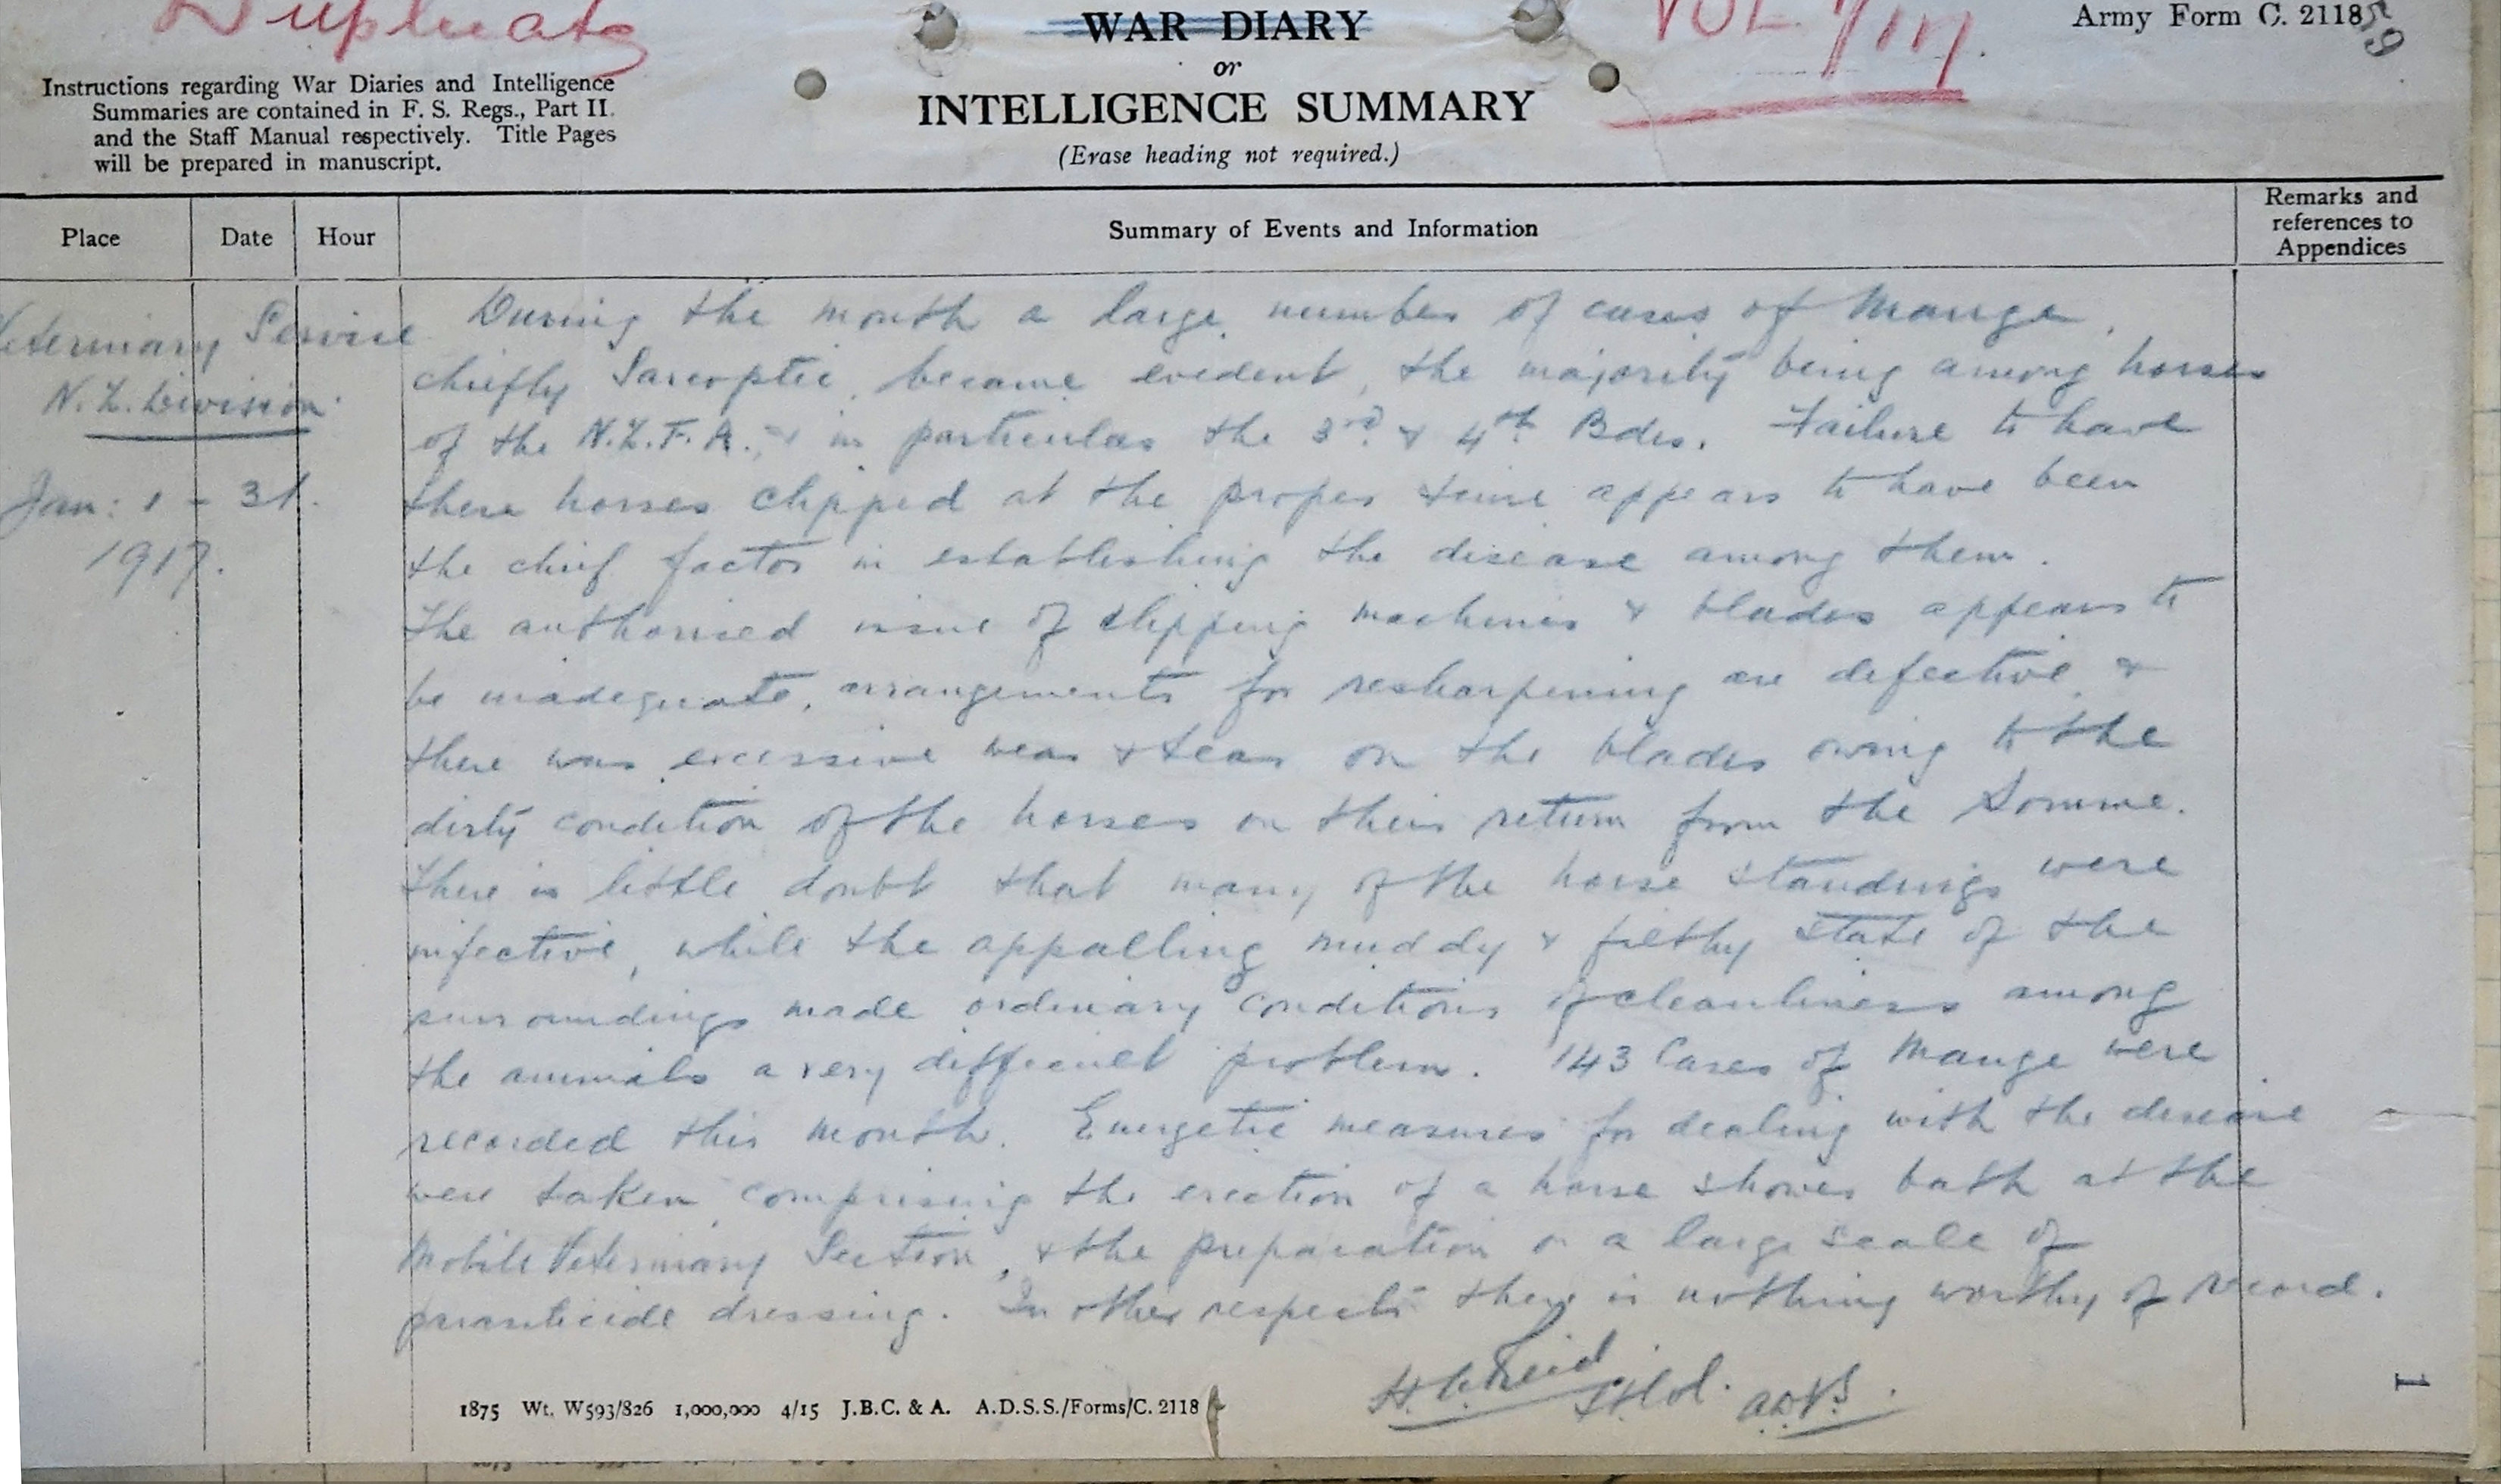 Duplicate
WAR DIARY
or
INTELLIGENCE SUMMARY
(Erase heading not required.)
VOL
Army Form C. 2118
59
Instructions regarding War Diaries and Intelligence
Summaries are contained in F. S. Regs., Part II.
and the Staff Manual respectively. Title Pages
will be prepared in manuscript.
Place
Date
Hour
Summary of Events and Information
Remarks and
references to
Appendices
Veterinary Service
N.Z. Division.
Jan: 1 - 31.
1917.
During the month a large number of cases of Mange,
chiefly Sarcoptic, became evident, the majority being among horses
of the N.Z.F.A., & in particular the 3rd & 4th Bdes. Failure to have
these horses clipped at the proper time appears to have been
the chief factor in establishing the disease among them.
The authorised issue of clipping machines & blades appears to
be inadequate, arrangements for resharpening are defective, &
there was excessive wear & tear on the blades owing to the
dirty condition of the horses on their return from the Somme.
There is little doubt that many of the horse standings were
infective, while the appalling muddy & filthy state of the
surroundings made ordinary conditions of cleanliness among
the animals a very difficult problem. 143 Cases of Mange were
recorded this month. Energetic measures for dealing with the disease
were taken, comprising the erection of a horse shower bath at the
Mobile Veterinary Section, & the preparation on a large scale of
parasiticide dressing. In other respects there is nothing worthy of record.
Reid
A.D.V.S.
1875 Wt. W593/826 1,000,000 4/15 J.B.C. & A. A.D.S.S./Forms/C. 2118
1